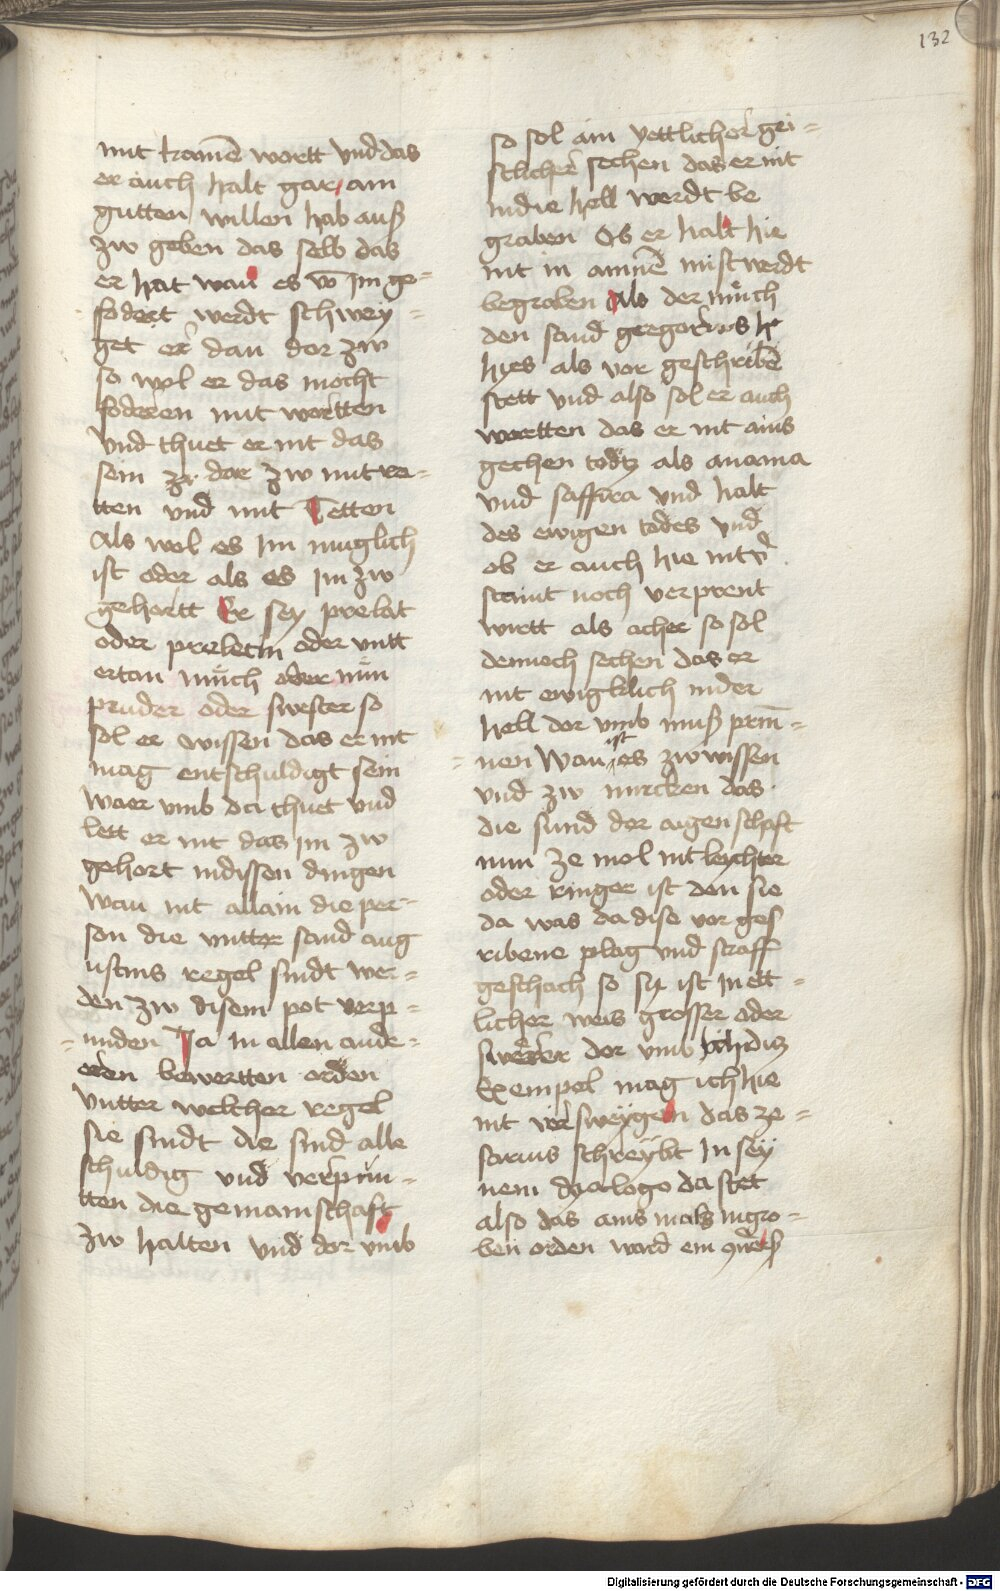 132
mit kainē wortt vnd das
er auch halt gar ain
gutten willen hab auß
zw geben das selb das
er hat wan es vō Im ge=
fodert werdt schwey=
get er dan dor zw
so wol er das mocht
foderen mit wortten
vnd thuet er nit das
sein zu dor zw mit re=
tten vnd mit Tetten
Als wol es Im muglich
ist oder als es Im zw
gehortt Er sey prelat
oder prelectin oder vntt
ertan münch oder nün
pruder oder swester so
sol er wissen das er nit
mag entschuldigt sein
waer vmb da thuet vnd
lett er nit das im zw
gehort indissen dingen
wan nit allain die per=
son die vntter sand aug
ustins regel sindt wer=
den zw disem pot verp=
=unden Ja In allen ande=
eren bewertten orden
vntter welcher regel
sie sindt die sind alle
schuldig vnd verpun=
tten die gemainschaft
zw halten vnd dor vmb
so sol ain yettlicher gei=
stlicher sechen das er nit
indie hell werdt be
graben Ob er halt hie
nit in ainnē mist werdt
begraben Als der münch
den sand gregorius
hyes als vor geschribē
stett vnd also sol er auch
wartten das er nit ains
gechen todtz als anania
vnd saffira vnd halt
des ewigen todes vnd
ob er auch hie nit v̄
staint noch verprent
wirtt als acher so sol
dennoch sechen das er
nit ewigklich inder
hell dor vmb muß prin̄=
=nen Wan ist es zw wissen
vnd zw mircken das
die sund der aigenschaft
nun ze mol nit leychter
oder ringer ist den sie
da was da dise vor ges
ribene plag vnd straff
geschach so sy ist In ett=
licher weis grosser oder
swerer dor vmb
Exempel mag ich hie
nit verswygen das ze=
sarius schreybt In sey
nem dyalogo da stet
also das ains mals in gro=
ben orden ward ein
Digitalisierung gefördert durch die Deutsche Forschungsgemeinschaft - DFG